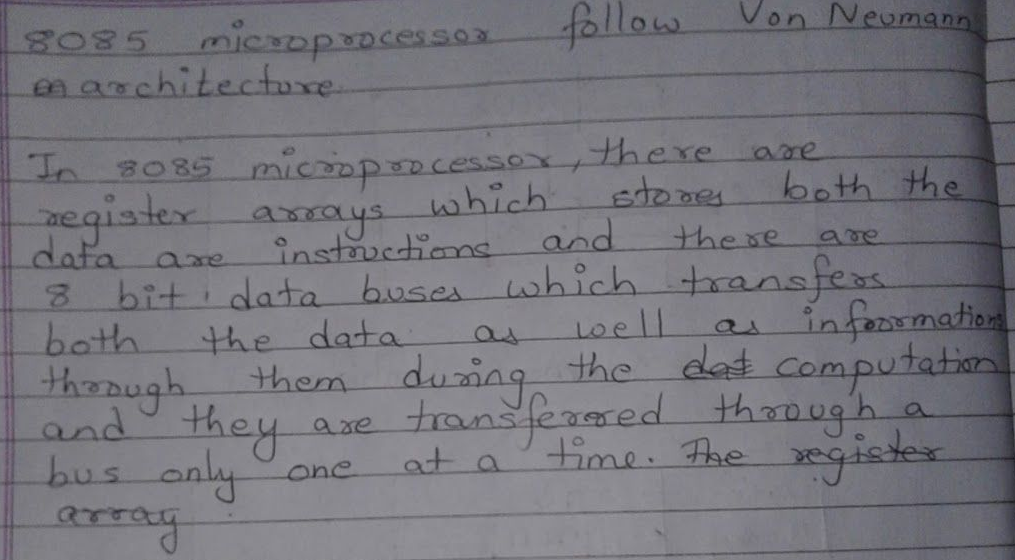 8085 microprocessor follow Von Neumann
architecture.
In 8085 microprocessor, there are
register arrays which stores both the
data are instructions and there are
8 bit data buses which transfers
both the data as well as information
through them during the dat computation
and they are transferred through a
bus only one at a time. The register
array